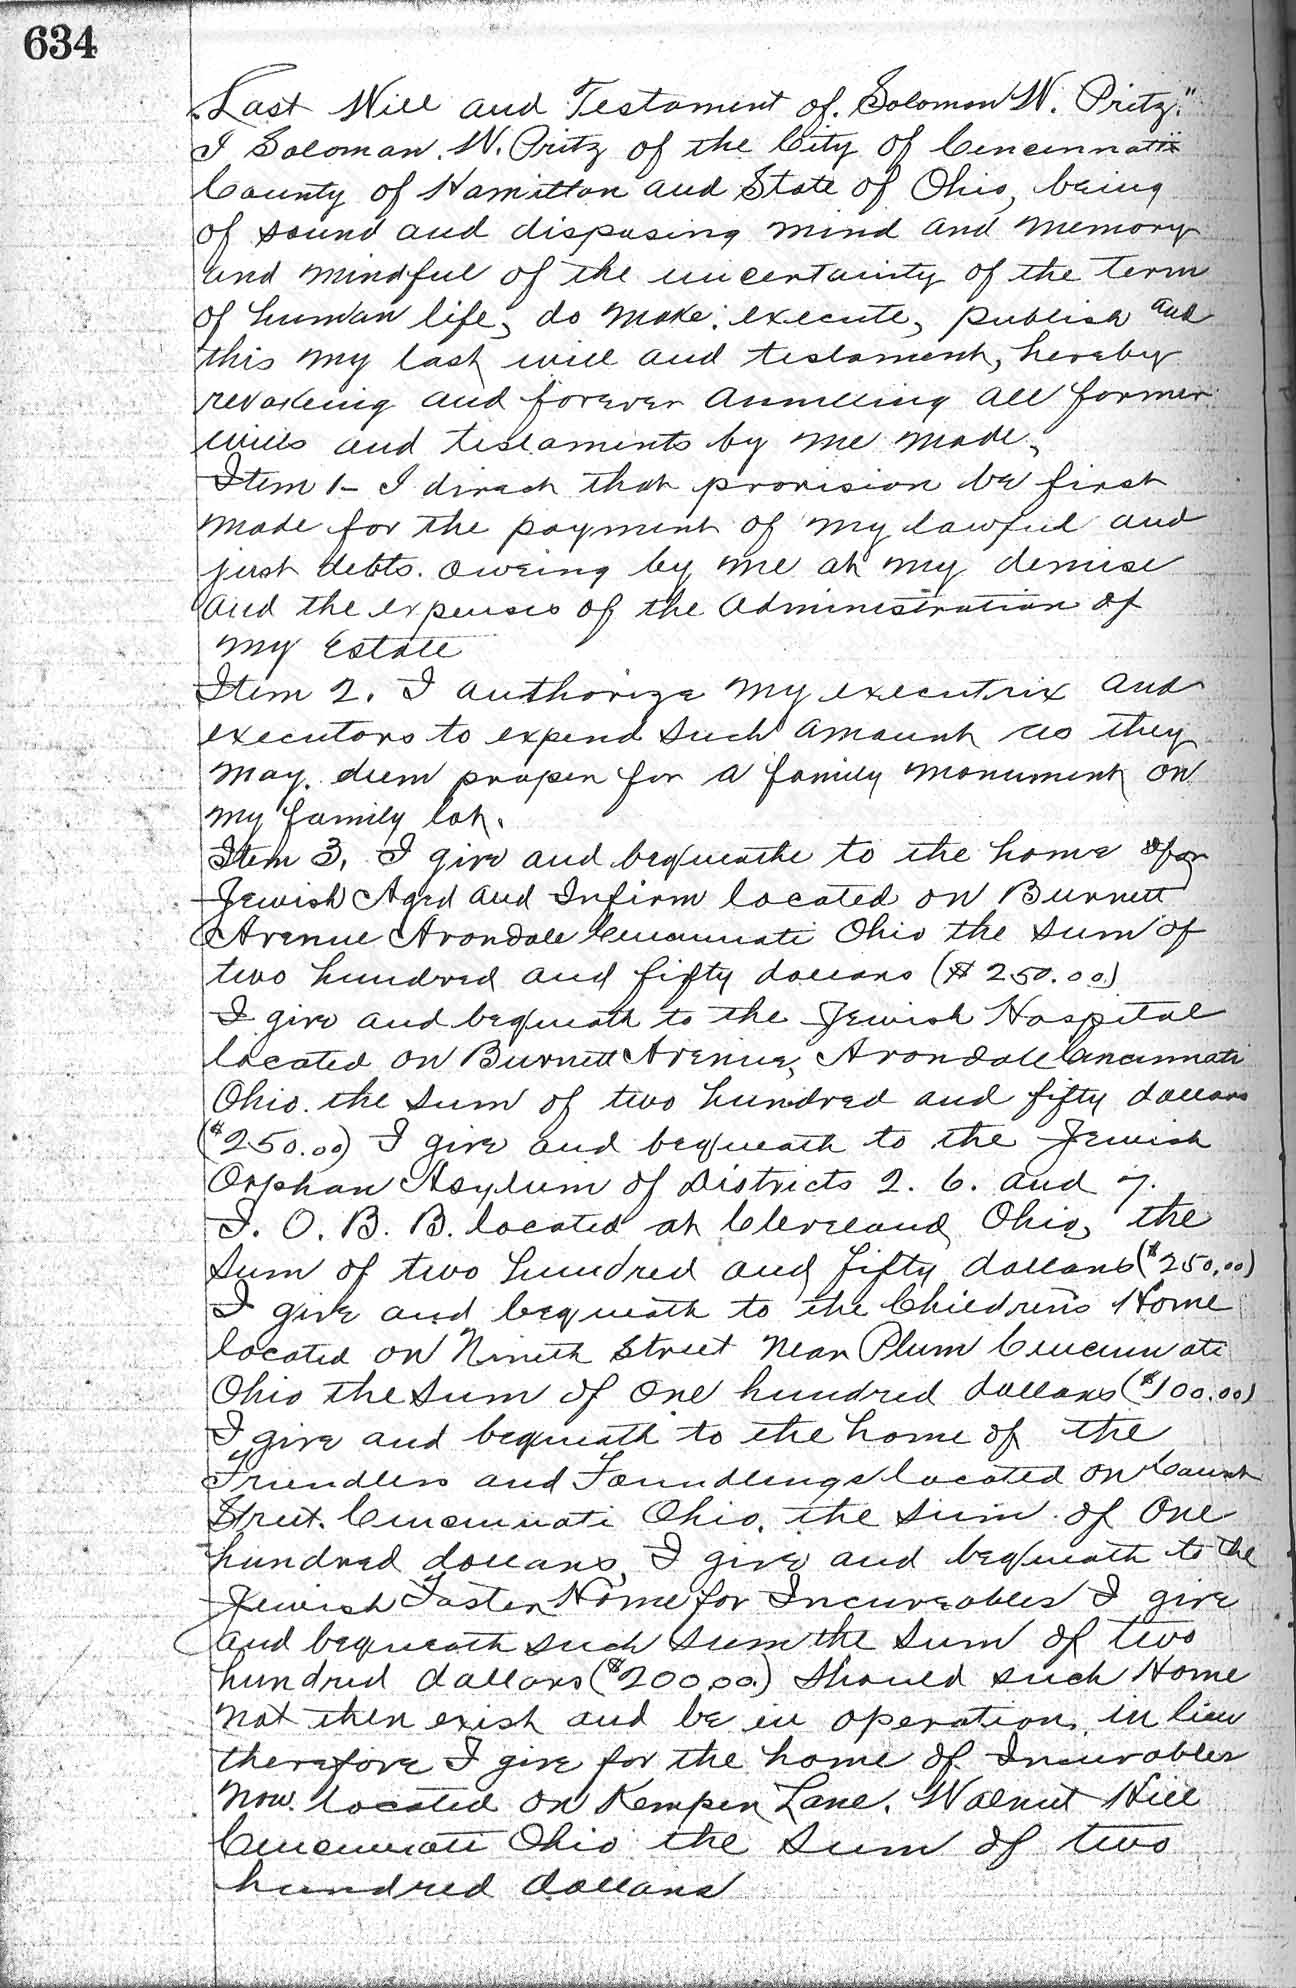 634
"Last Will and Testament of Solomon W. Pritz."
I Soloman. W. Pritz of the City of Cincinnati
County of Hamilton and State of Ohio, being
of sound and disposing mind and memory
and mindful of the uncertainty of the term
of human life, do make, execute, publish and
this my last will and testament, hereby
revokeing and forever annulling all former
wills and testaments by me made.
Item 1- I direct that provision be first
made for the payment of my lawful and
just debts. oweing by me at my demise
and the expenses of the administration of
my Estate
Item 2. I authorize my executrix and
executors to expend such amount as they
may. deem proper for a family monument on
my family lot.
Item 3, I give and bequeathe to the home for
Jewish Aged and Infirm located on Burnett
Avenue Avondale Cincinnati Ohio the sum of
two hundred and fifty dollars ($250.00)
I give and bequeath to the Jewish Hospital
located on Burnett Avenue, Avondale Cincinnati
Ohio. the sum of two hundred and fifty dollars
($250.00) I give and bequeath to the Jewish
Orphan Asylum of Districts 2. 6. and 7.
I. O. B. B. located at Cleveland, Ohio, the
sum of two hundred and fifty dollars ($250.00)
I give and bequeath to the Children's Home
located on Nineth Street near Plum Cincinnati
Ohio the sum of one hundred dollars ($100.00)
I give and bequeath to the home of the
Friendless and Foundlings located on Court
Street. Cincinnati Ohio. the sum of One
hundred dollars, I give and bequeath to the
Jewish Foster Home for Incureables I give
and bequeath such sum the sum of two
hundred dollars ($200.00.) Should such Home
not then exist and be in operation, in lieu
therefore I give for the home of Incurables
now. located on Kemper Lane. Walnut Hill
Cincinnati Ohio the sum of two
hundred dollars